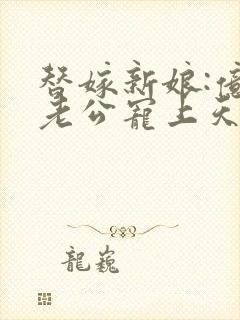 替嫁新娘:億
老公寵上天
龍巍